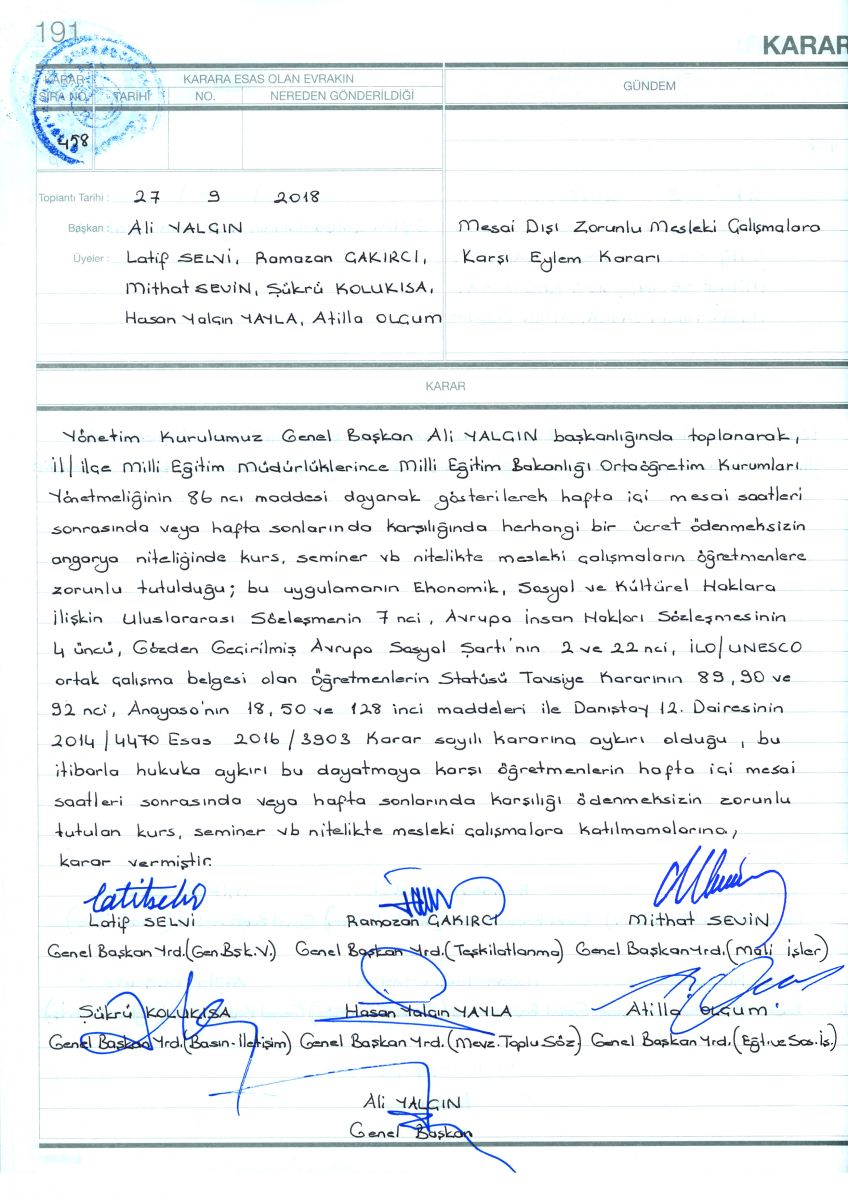 191
KARAR
KARAR SIRA NO.
KARARA ESAS OLAN EVRAKIN
TARİHİ NO. NEREDEN GÖNDERİLDİĞİ
GÜNDEM
458
Toplantı Tarihi : 27 / 9 / 2018
Başkan : Ali YALÇIN
Üyeler : Latif SELVİ, Ramazan ÇAKIRCI,
Mithat SEVİN, Şükrü KOLUKISA,
Hasan Yalçın YAYLA, Atilla OLÇUM
Mesai Dışı Zorunlu Mesleki Çalışmalara
Karşı Eylem Kararı
KARAR
Yönetim Kurulumuz Genel Başkan Ali YALÇIN başkanlığında toplanarak,
İl/İlçe Milli Eğitim Müdürlüklerince Milli Eğitim Bakanlığı Ortaöğretim Kurumları
Yönetmeliğinin 86 ncı maddesi dayanak gösterilerek hafta içi mesai saatleri
sonrasında veya hafta sonlarında karşılığında herhangi bir ücret ödenmeksizin
angarya niteliğinde kurs, seminer vb nitelikte mesleki çalışmaların öğretmenlere
zorunlu tutulduğu; bu uygulamanın Ekonomik, Sosyal ve Kültürel Haklara
İlişkin Uluslararası Sözleşmenin 7 nci, Avrupa İnsan Hakları Sözleşmesinin
4 üncü, Gözden Geçirilmiş Avrupa Sosyal Şartı'nın 2 ve 22 nci, İLO/UNESCO
ortak çalışma belgesi olan Öğretmenlerin Statüsü Tavsiye Kararının 89, 90 ve
92 nci, Anayasa'nın 18, 50 ve 128 inci maddeleri ile Danıştay 12. Dairesinin
2014/4470 Esas 2016/3903 Karar sayılı kararına aykırı olduğu, bu
itibarla hukuka aykırı bu dayatmaya karşı öğretmenlerin hafta içi mesai
saatleri sonrasında veya hafta sonlarında karşılığı ödenmeksizin zorunlu
tutulan kurs, seminer vb nitelikte mesleki çalışmalara katılmamalarına,
karar vermiştir.
Latif SELVİ Ramazan ÇAKIRCI Mithat SEVİN
Genel Başkan Yrd.(Gen.Bşk.V.) Genel Başkan Yrd.(Teşkilatlanma) Genel Başkan Yrd.(Mali İşler)
Şükrü KOLUKISA Hasan Yalçın YAYLA Atilla OLÇUM
Genel Başkan Yrd.(Basın-İletişim) Genel Başkan Yrd.(Mevz.Toplu Söz.) Genel Başkan Yrd.(Eğt.ve Sos.İş.)
Ali YALÇIN
Genel Başkan